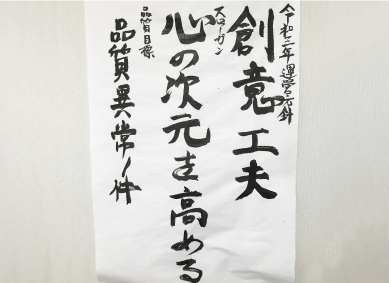 令和三年運営方針
創意工夫
スローガン
心の次元を高める
品質目標
品質異常1件